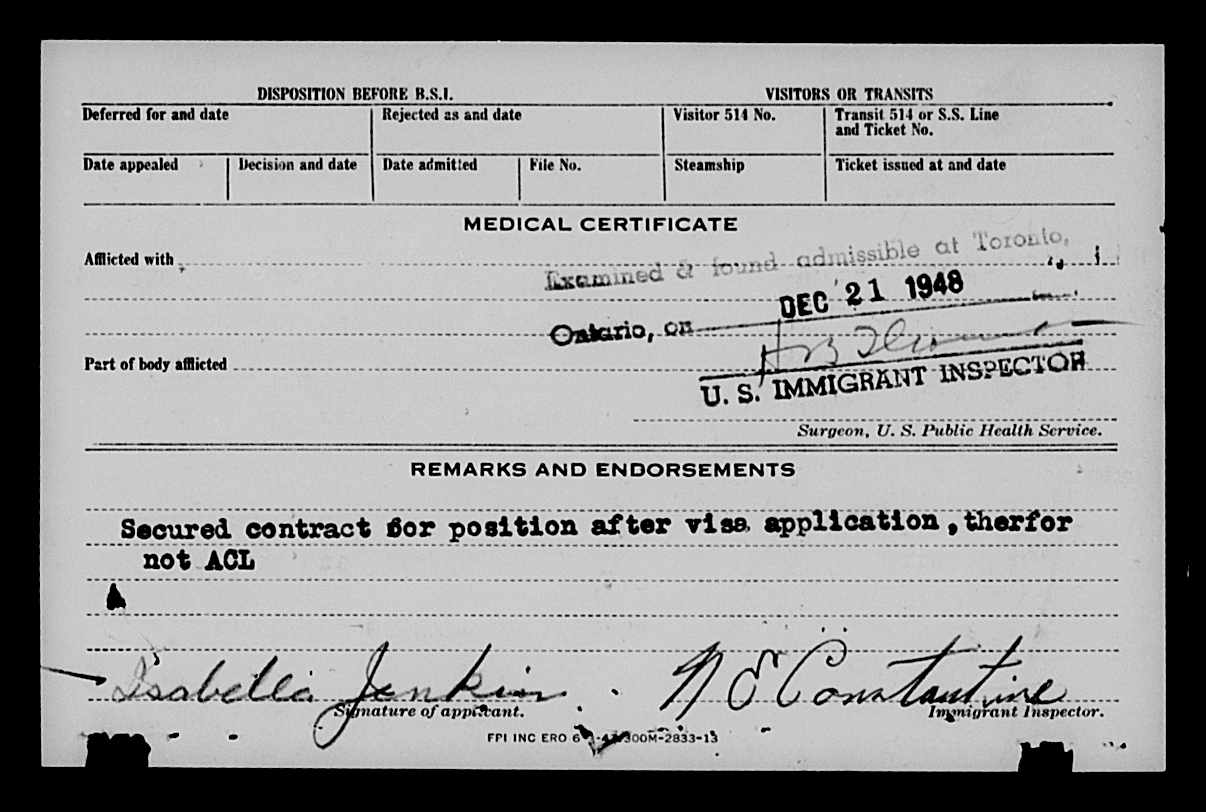 DISPOSITION BEFORE B.S.I. VISITORS OR TRANSITS
Deferred for and date Rejected as and date Visitor 514 No. Transit 514 or S.S. Line
and Ticket No.
Date appealed Decision and date Date admitted File No. Steamship Ticket issued at and date
MEDICAL CERTIFICATE
Examined & found admissible at Toronto,
Afflicted with
DEC 21 1948
Ontario, on
Part of body afflicted
U. S. IMMIGRANT INSPECTOR
Surgeon, U. S. Public Health Service.
REMARKS AND ENDORSEMENTS
Secured contract for position after visa application, therfor
not ACL
Isabella Jenkins N E Constantine
Signature of applicant. Immigrant Inspector.
FPI INC ERO 300M-2833-13